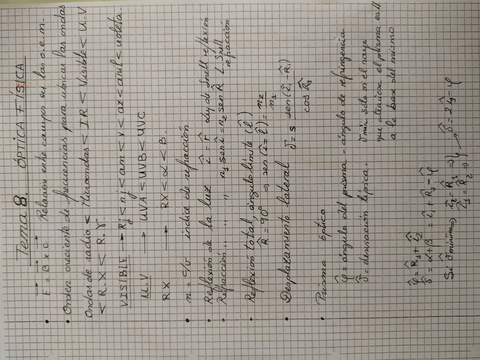 Tema 8. ÓPTICA FÍSICA
• E = B × c Relación entre campos en las o.e.m.
• Orden creciente de frecuencias para ubicar las ondas
Ondas de radio < Microondas < IR < Visible < U.V
< R.X < R.γ
VISIBLE → Rj < nj < am < v < az < añil < violeta.
U.V → UVA < UVB < UVC
RX → RX < α < B.
• n = c/v índice de refracción
• Reflexión de la luz î = r̂ Ley de Snell reflexión
• Refracción... " " n₁ sen î = n₂ sen R̂ L Snell refracción
• Reflexión total, ángulo límite (l̂)
R̂ = 90° → sen(î = l̂) = n₂/n₁
• Desplazamiento lateral δ = s sen(î₁ - R̂₁)/cos R̂₁
• Prisma óptico
φ̂ = ángulo del prisma = ángulo de refringencia
δ̂ = desviación típica.
φ̂ = R̂₁ + î₂
δ̂ = α + β = î₁ + R̂₂ - φ̂
Si δ mínimo,
δ̂ = 2î₁ - φ